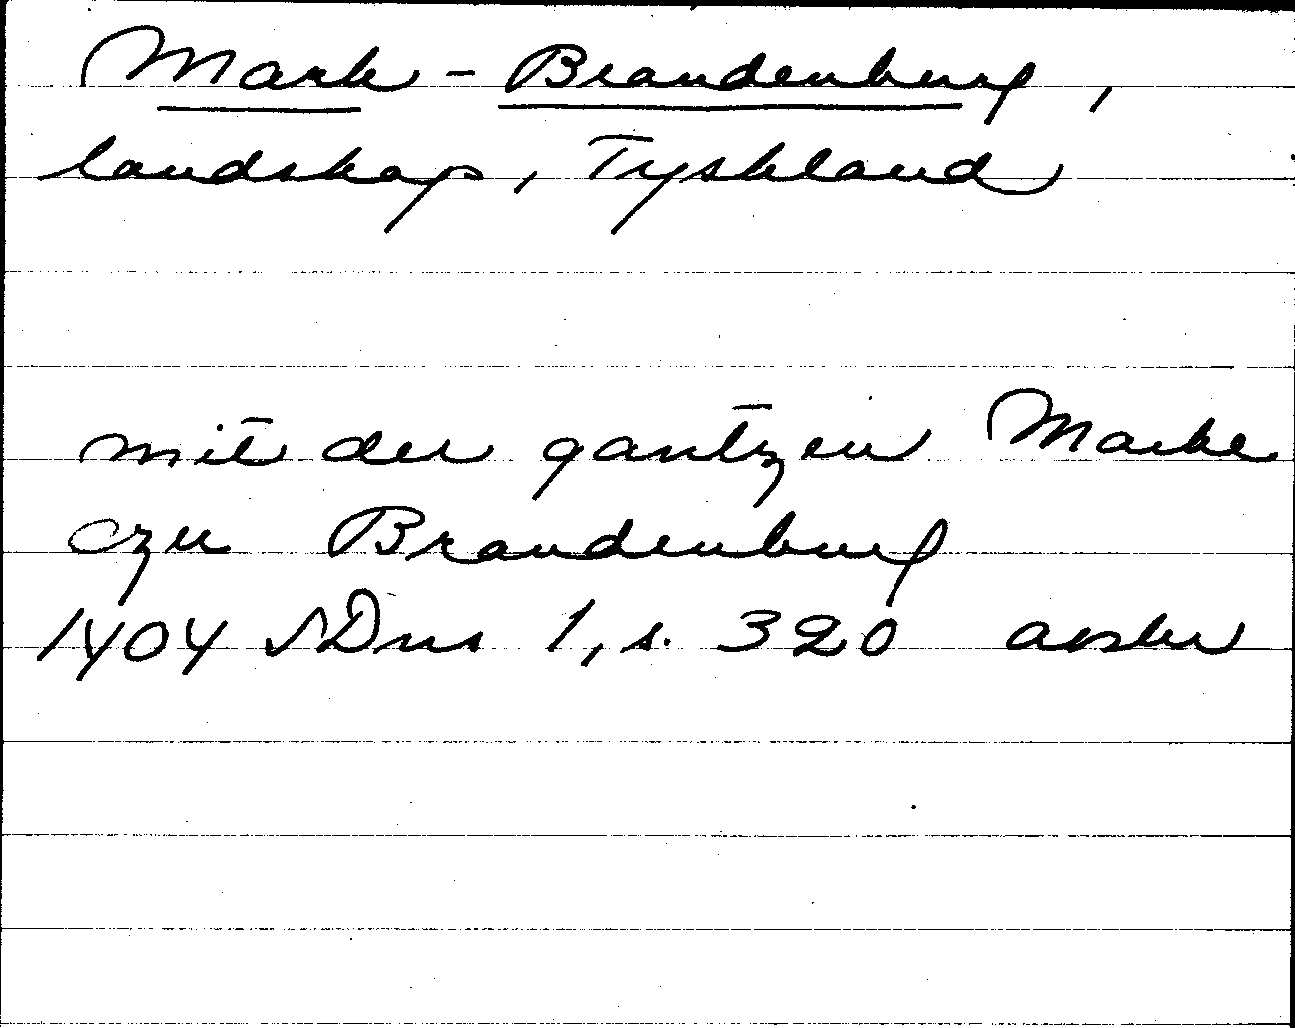 Mark - Brandenburg,
landskap, Tyskland
mit der gantzen Marke
czu Brandenburg
1404 SDns 1, s. 320 avskr